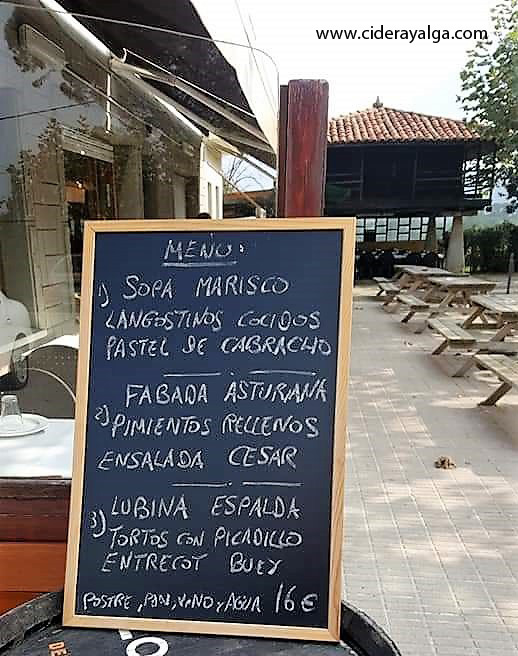 www.ciderayalga.com
MENÚ:
1) SOPA MARISCO
LANGOSTINOS COCIDOS
PASTEL DE CABRACHO
FABADA ASTURIANA
2) PIMIENTOS RELLENOS
ENSALADA CESAR
3) LUBINA ESPALDA
TORTOS CON PICADILLO
ENTRECOT BUEY
POSTRE, PAN, VINO Y AGUA 16€